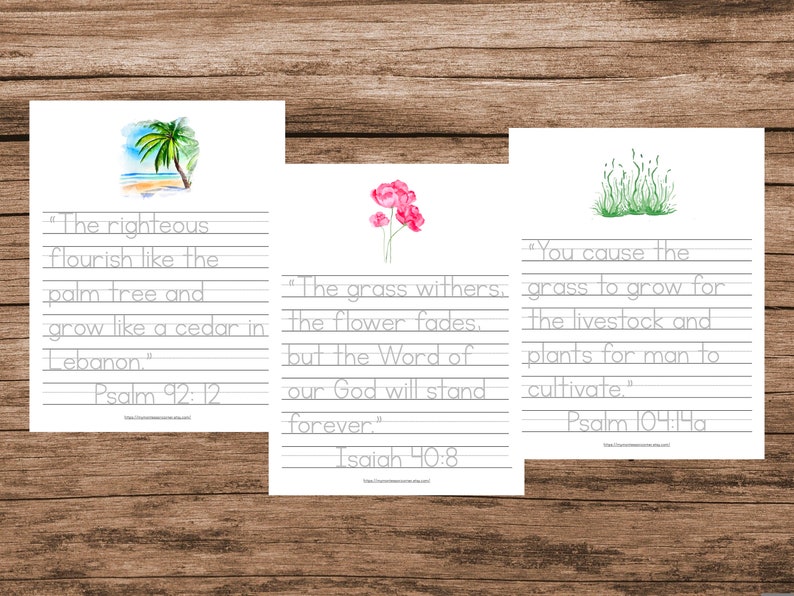 “The righteous
flourish like the
palm tree and
grow like a cedar in
Lebanon.”
Psalm 92: 12
https://mymontessoricorner.etsy.com/
“The grass withers,
the flower fades,
but the Word of
our God will stand
forever.”
Isaiah 40:8
https://mymontessoricorner.etsy.com/
“You cause the
grass to grow for
the livestock and
plants for man to
cultivate.”
Psalm 104:14a
https://mymontessoricorner.etsy.com/